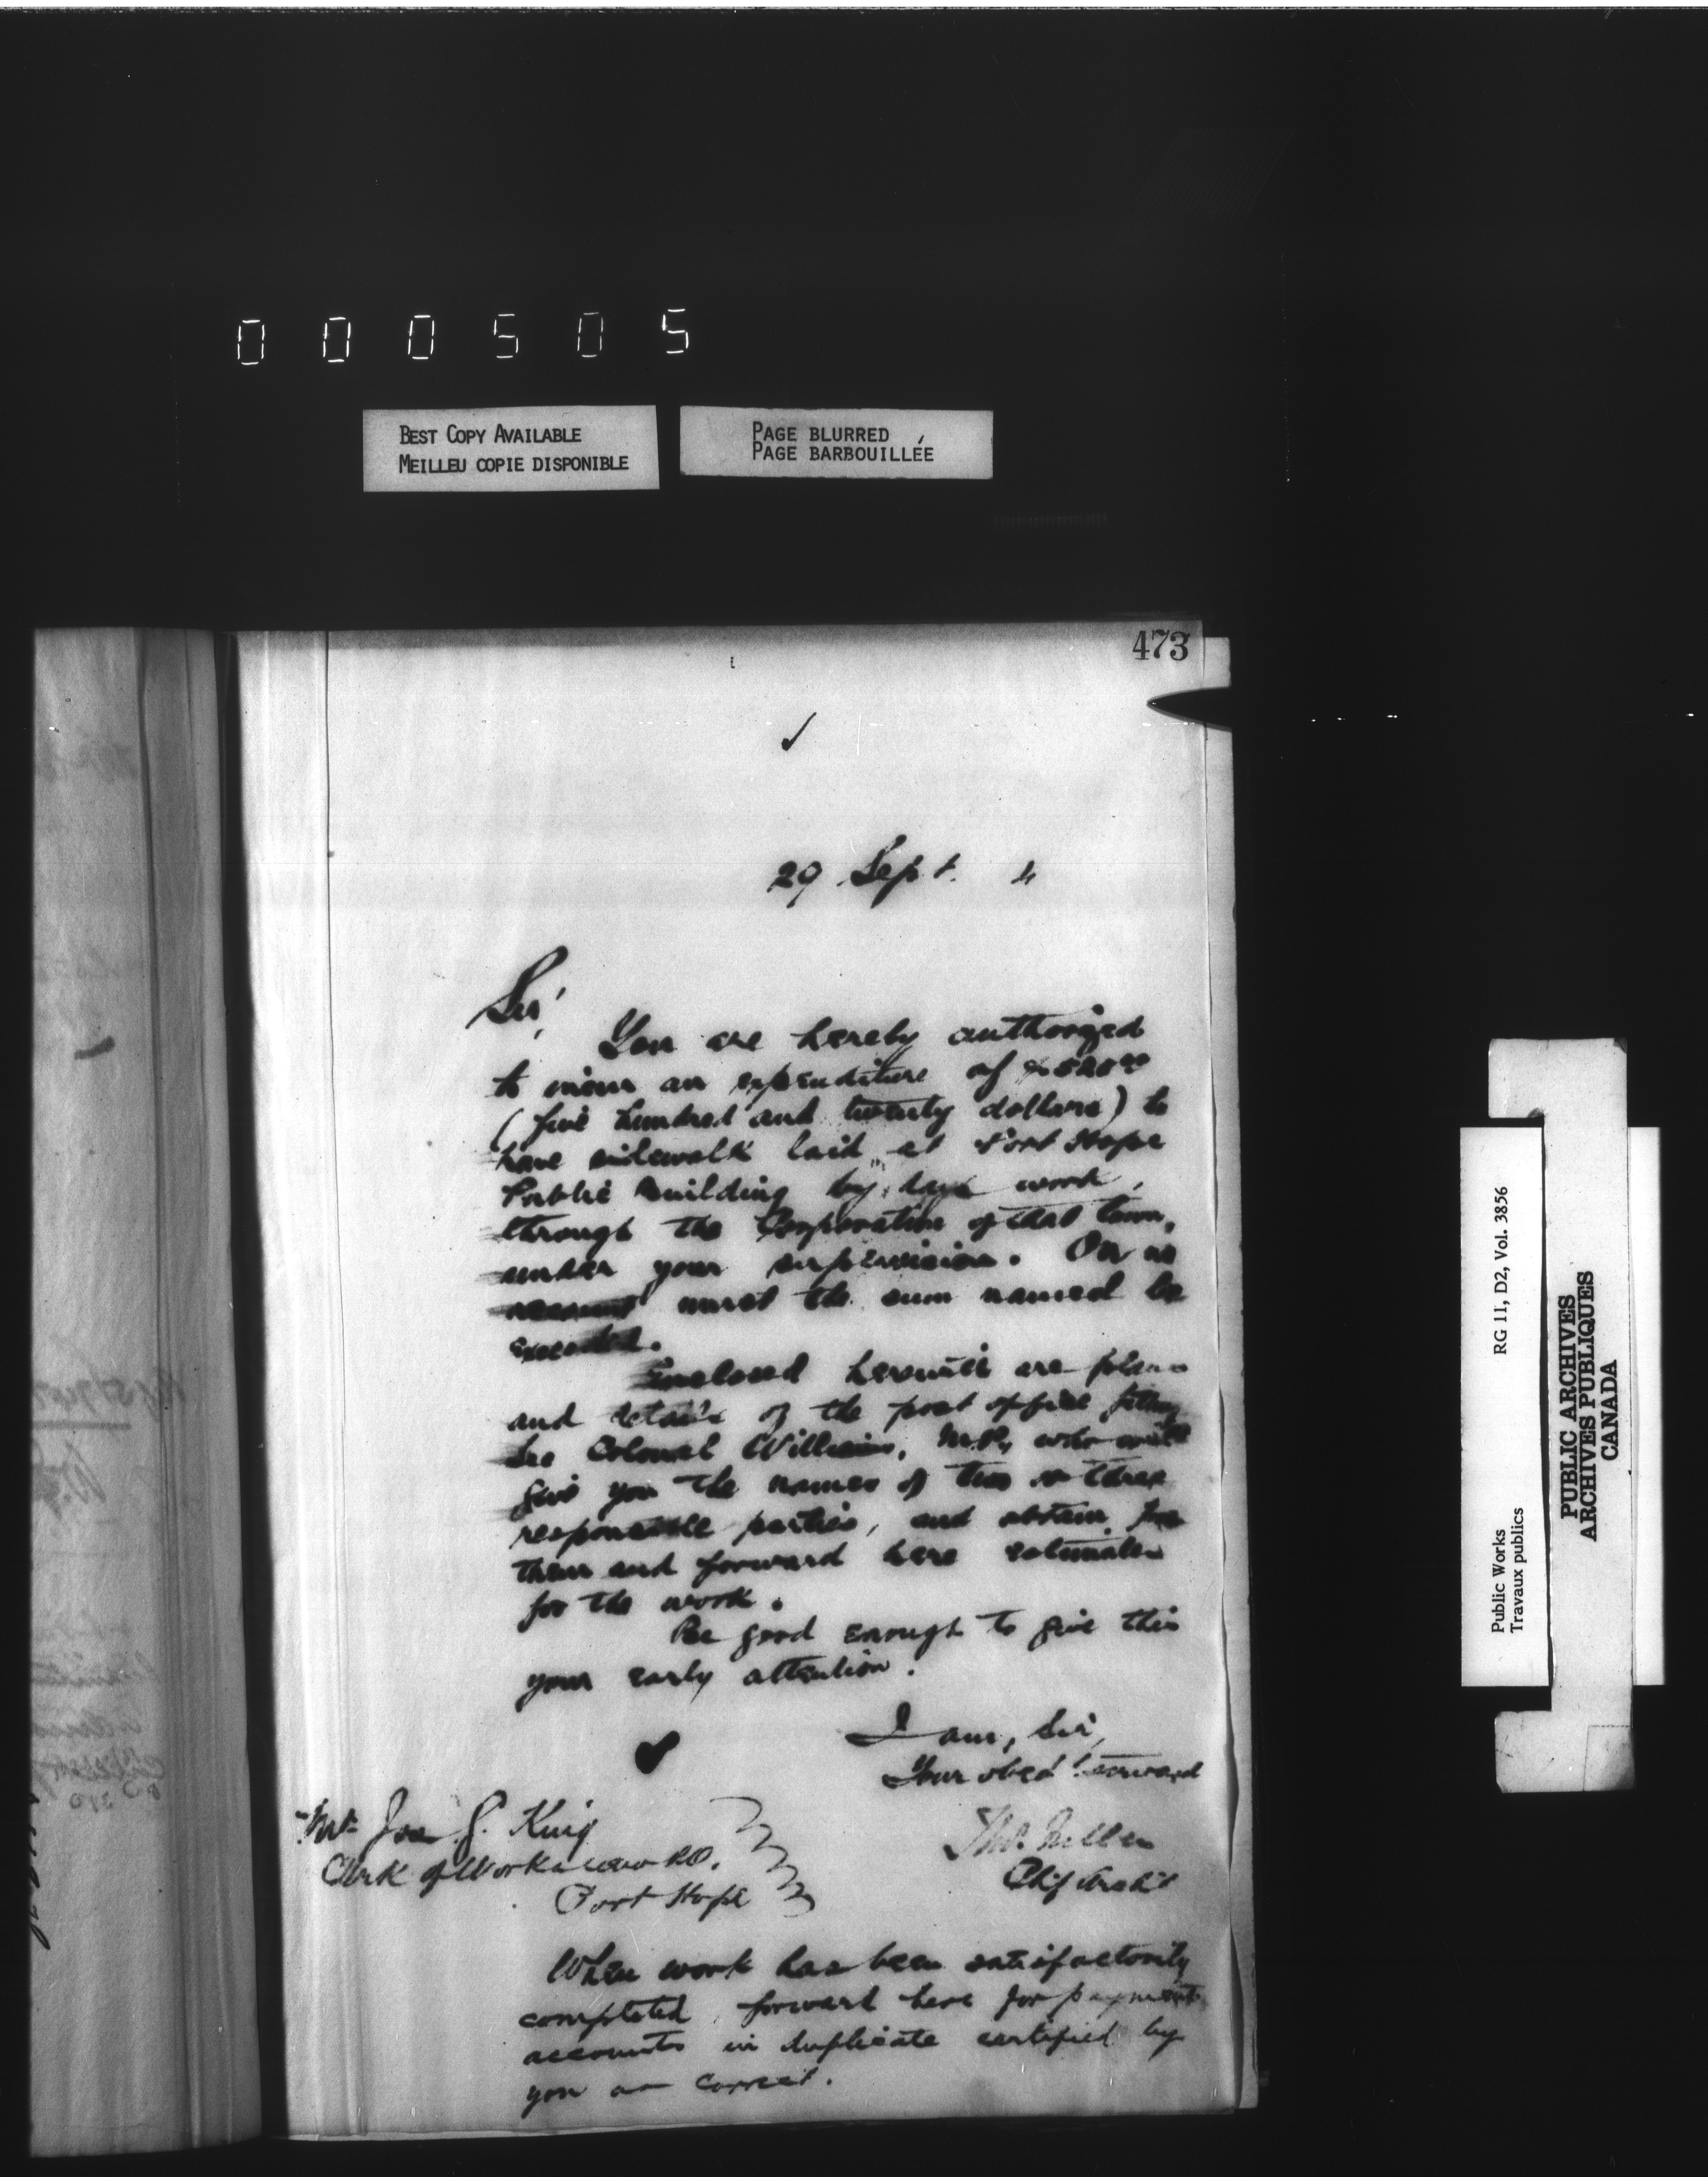 000505
BEST COPY AVAILABLE
MEILLEU COPIE DISPONIBLE
PAGE BLURRED
PAGE BARBOUILLÉE
473
29 Sept. 4
Sir,
You are hereby authorized
to incur an expenditure of $520.00
(five hundred and twenty dollars) to
have sidewalk laid at Port Hope
Public Building by days work,
through the Corporation of that town,
under your supervision. On no
account must the sum named be
exceeded.
Enclosed herewith are plans
and details of the post office fittings
See Colonel Williams, M.P., who will
give you the names of two or three
responsible parties, and obtain from
them and forward here estimates
for the work.
Be good enough to give this
your early attention.
I am, Sir,
Your obed. Servant
Thos. Fuller
Chif Archt
Mr. Jos. G. King
Clerk of Works
Port Hope
When work has been satisfactorily
completed, forward here for payment
accounts in duplicate certified by
you as correct.
Public Works RG 11, D2, Vol. 3856
Travaux publics
PUBLIC ARCHIVES
ARCHIVES PUBLIQUES
CANADA